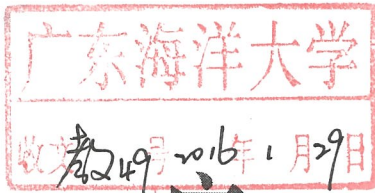 广东海洋大学
收文教49号2016年1月29日